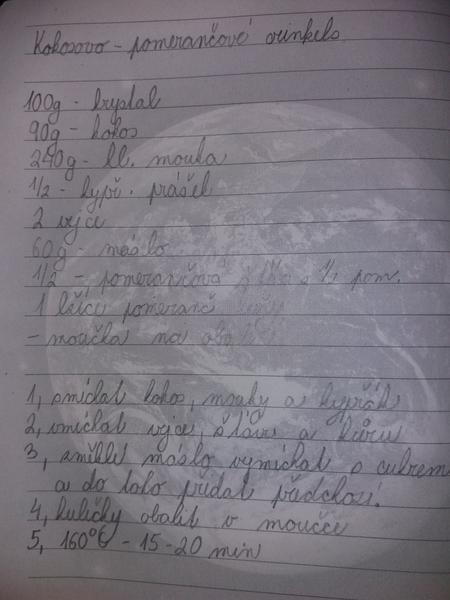 Kokosovo - pomerančové crinkels
100g - krystal
90g - kokos
240g - hl. mouka
1/2 - kypř. prášek
2 vejce
60g - máslo
1/2 - pomerančová šťáva z 1/2 pom.
1 lžíce pomeranč kůry
- moučka na obalení
1, smíchat kokos, mouky a kypřák
2, vmíchat vejce, šťávu a kůru
3, změklé máslo vymíchat s cukrem
a do toho přidat předchozí.
4, kuličky obalit v moučce
5, 160°C - 15-20 min